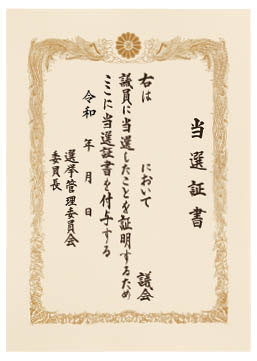 当選証書
右は　　　において　　　議会
議員に当選したことを証明するため
ここに当選証書を付与する
令和　年　月　日
選挙管理委員会
委員長